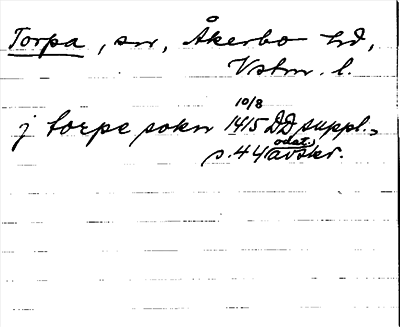 Torpa, sn, Åkerbo hd,
Vstm. l.
j torpe sokn 10/8 1415 DD suppl.,
s. 44 odat. avskr.